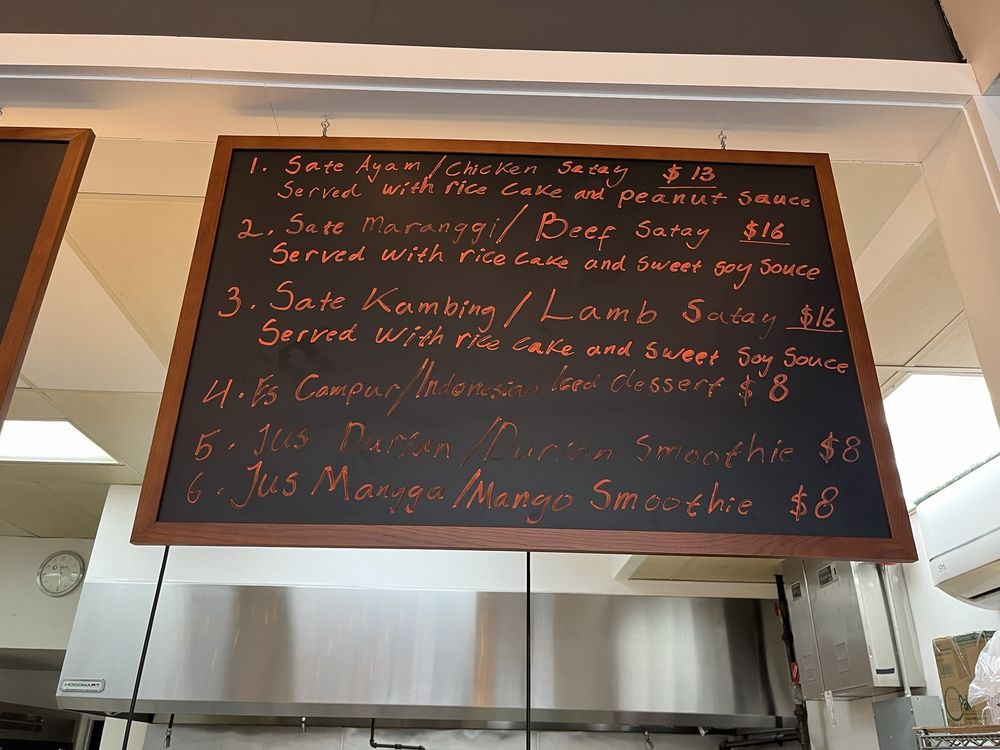 1. Sate Ayam/Chicken Satay $13
Served with rice Cake and peanut sauce
2. Sate Maranggi/Beef Satay $16
Served with rice Cake and sweet soy Souce
3. Sate Kambing/Lamb Satay $16
Served with rice Cake and sweet Soy Souce
4. Es Campur/Indonesian Iced dessert $8
5. Jus Durian/Durian Smoothie $8
6. Jus Mangga/Mango Smoothie $8
HOODMART